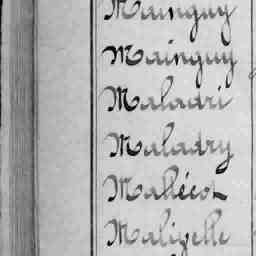 Mainguy
Mainguy
Maladri
Maladry
Mallécot
Malizelle